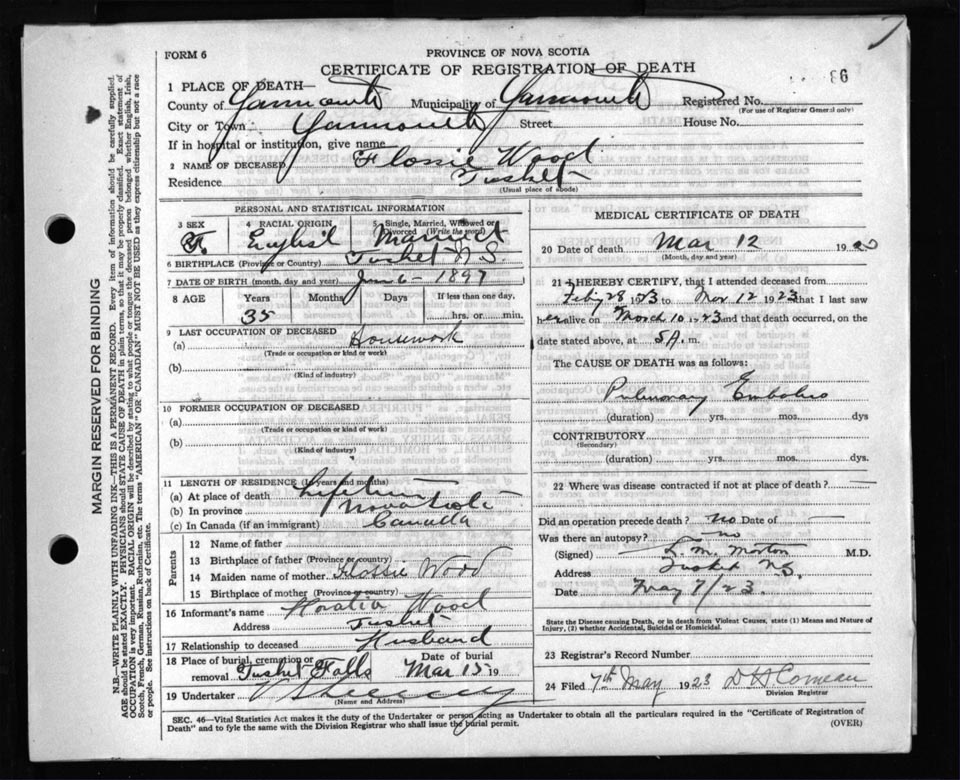 FORM 6
PROVINCE OF NOVA SCOTIA
CERTIFICATE OF REGISTRATION OF DEATH
86
1 PLACE OF DEATH—
County of Yarmouth Municipality of Yarmouth Registered No.
(For use of Registrar General only)
City or Town Yarmouth Street House No.
If in hospital or institution, give name
2 NAME OF DECEASED Flossie Wood
Residence Tusket
(Usual place of abode)
PERSONAL AND STATISTICAL INFORMATION
3 SEX 4 RACIAL ORIGIN 5 Single, Married, Widowed or Divorced (Write the word)
F. English Married
6 BIRTHPLACE (Province or Country) Tusket N.S.
7 DATE OF BIRTH (month, day and year) 6 - 1897
8 AGE Years Months Days If less than one day,
35 hrs. or min.
9 LAST OCCUPATION OF DECEASED
(a) Housework
(Trade or occupation or kind or work)
(b)
(Kind of industry)
10 FORMER OCCUPATION OF DECEASED
(a)
(Trade or occupation or kind of work)
(b)
(Kind of industry)
11 LENGTH OF RESIDENCE (In years and months)
(a) At place of death Lifetime
(b) In province Nova Scotia
(c) In Canada (if an immigrant) Canada
Parents
12 Name of father
13 Birthplace of father (Province or country)
14 Maiden name of mother Flossie Wood
15 Birthplace of mother (Province or country)
16 Informant's name Horatio Wood
Address Tusket
17 Relationship to deceased Husband
18 Place of burial, cremation or removal Tusket Falls Date of burial Mar 15 19
19 Undertaker
(Name and Address)
MEDICAL CERTIFICATE OF DEATH
20 Date of death Mar 12 19
(Month, day and year)
21 I HEREBY CERTIFY, that I attended deceased from
28 to Mar 12 1923 that I last saw
her alive on March 10 1923 and that death occurred, on
date stated above, at 5 A. m.
The CAUSE OF DEATH was as follows:
Pulmonary
(duration) yrs. mos. dys
CONTRIBUTORY
(Secondary)
(duration) yrs. mos. dys.
22 Where was disease contracted if not at place of death? —
Did an operation precede death? no Date of —
Was there an autopsy? no
(Signed) M. Morton M.D.
Address Tusket N.S.
Date May 7/23.
State the Disease causing Death, or in death from Violent Causes, state (1) Means and Nature of Injury, (2) whether Accidental, Suicidal or Homicidal.
23 Registrar's Record Number
24 Filed 7th May 1923 Comeau
Division Registrar
SEC. 46—Vital Statistics Act makes it the duty of the Undertaker or person acting as Undertaker to obtain all the particulars required in the "Certificate of Registration of
Death" and to fyle the same with the Division Registrar who shall issue the burial permit. (OVER)
MARGIN RESERVED FOR BINDING
N.B.—WRITE PLAINLY WITH UNFADING INK—THIS IS A PERMANENT RECORD. Every item of information should be carefully supplied.
AGE should be stated EXACTLY. PHYSICIANS should STATE CAUSE OF DEATH in plain terms, so that it may be properly classified. Exact statement of
OCCUPATION is very important. RACIAL ORIGIN will be described by stating to what people or tongue the deceased person belonged whether English, Irish,
Scotch, French, German, Russian, Ruthenian, etc. The terms "AMERICAN" or "CANADIAN" MUST NOT BE USED as they express citizenship but not a race
or people. See instructions on back of Certificate.